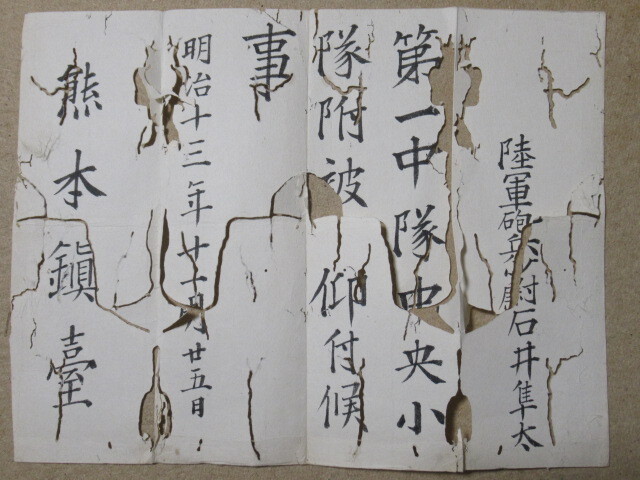 陸軍砲兵少尉石井隼太
第一中隊中央小
隊附被仰付候
事
明治十三年十月廿五日
熊本鎮臺